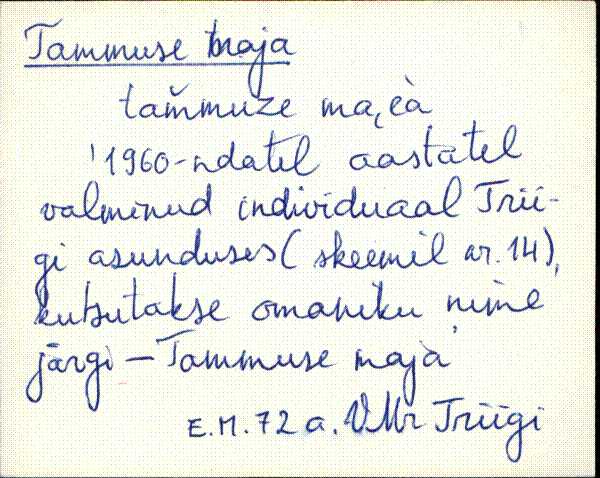 Tammuse maja
tam̆muze
'1960-ndatel aastatel
valminud individuaal Trii-
gi asunduses (skeemil nr. 14),
kutsutakse omaniku nime
järgi — Tammuse maja'
E.M. 72 a. VMr Triigi